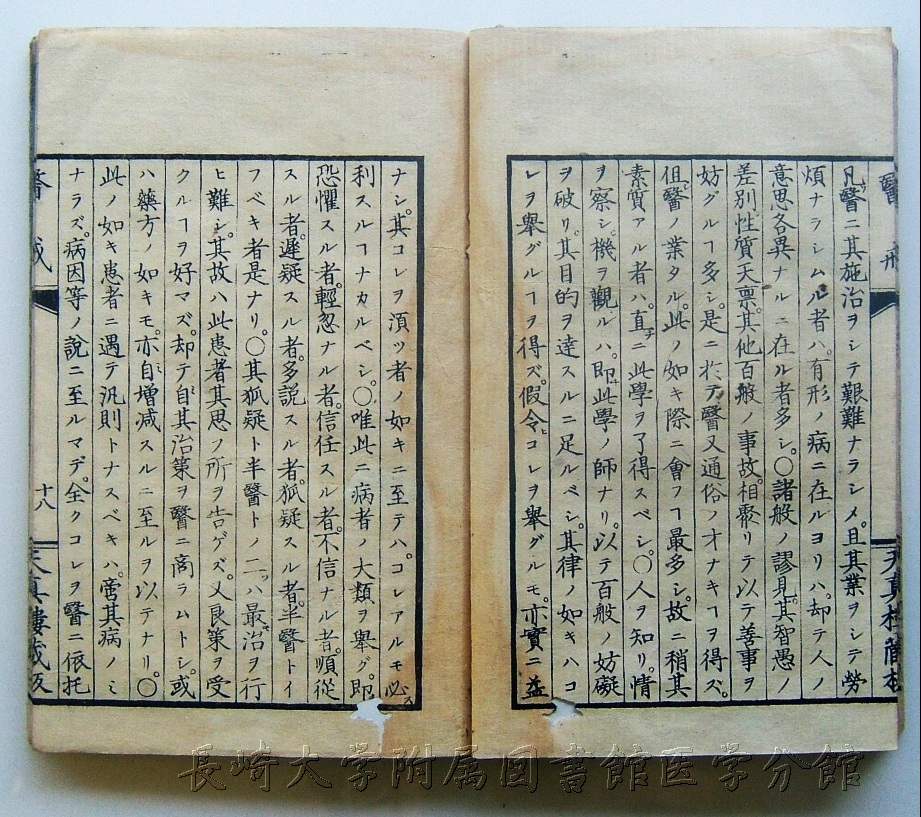 醫戒
凡醫ニ其施治ヲシテ艱難ナラシメ。且其業ヲシテ勞
煩ナラシムル者ハ。有形ノ病ニ在ルヨリハ。却テ人ノ
意思各異ナルニ在ル者多シ。〇諸般ノ謬見。其智愚ノ
差別性質天禀。其他百般ノ事故。相聚リテ以テ善事ヲ
妨グルヿ多シ。是ニ於テ醫又通俗ノオナキヿヲ得ズ。
伹醫ノ業タル。此ノ如キ際ニ會フヿ最多シ。故ニ稍其
素質アル者ハ。直チニ此學ヲ了得スベシ。〇人ヲ知リ。情
ヲ察シ。機ヲ觀ルハ。即此學ノ師ナリ。以テ百般ノ妨礙
ヲ破リ。其目的ヲ達スルニ足ルベシ。其律ノ如キハコ
レヲ擧グルヿヲ得ズ。假令ヒコレヲ擧グルモ。亦實ニ益
ナシ。其コレヲ須ツ者ノ如キニ至テハ。コレアルモ必ス
利スルヿナカルベシ。〇唯此ニ病者ノ大類ヲ擧グ。即
恐懼スル者。輕忽ナル者。信任スル者。不信ナル者。順從
スル者。遲疑スル者。多説スル者。狐疑スル者。半醫トイ
フベキ者是ナリ。〇其狐疑ト半醫トノ二ツハ最治ヲ行
ヒ難シ。其故ハ此患者其思フ所ヲ告ゲズ。又良策ヲ受
クルヿヲ好マズ。却テ自其治策ヲ醫ニ商ラムトシ。或
ハ藥方ノ如キモ。亦自増減スルニ至ルヲ以テナリ。〇
此ノ如キ患者ニ遇テ汎則トナスベキハ。啻其病ノミ
ナラズ。病因等ノ説ニ至ルマデ。全クコレヲ醫ニ依托
醫戒
十八
天真樓藏版
長崎大学附属図書館医学分館